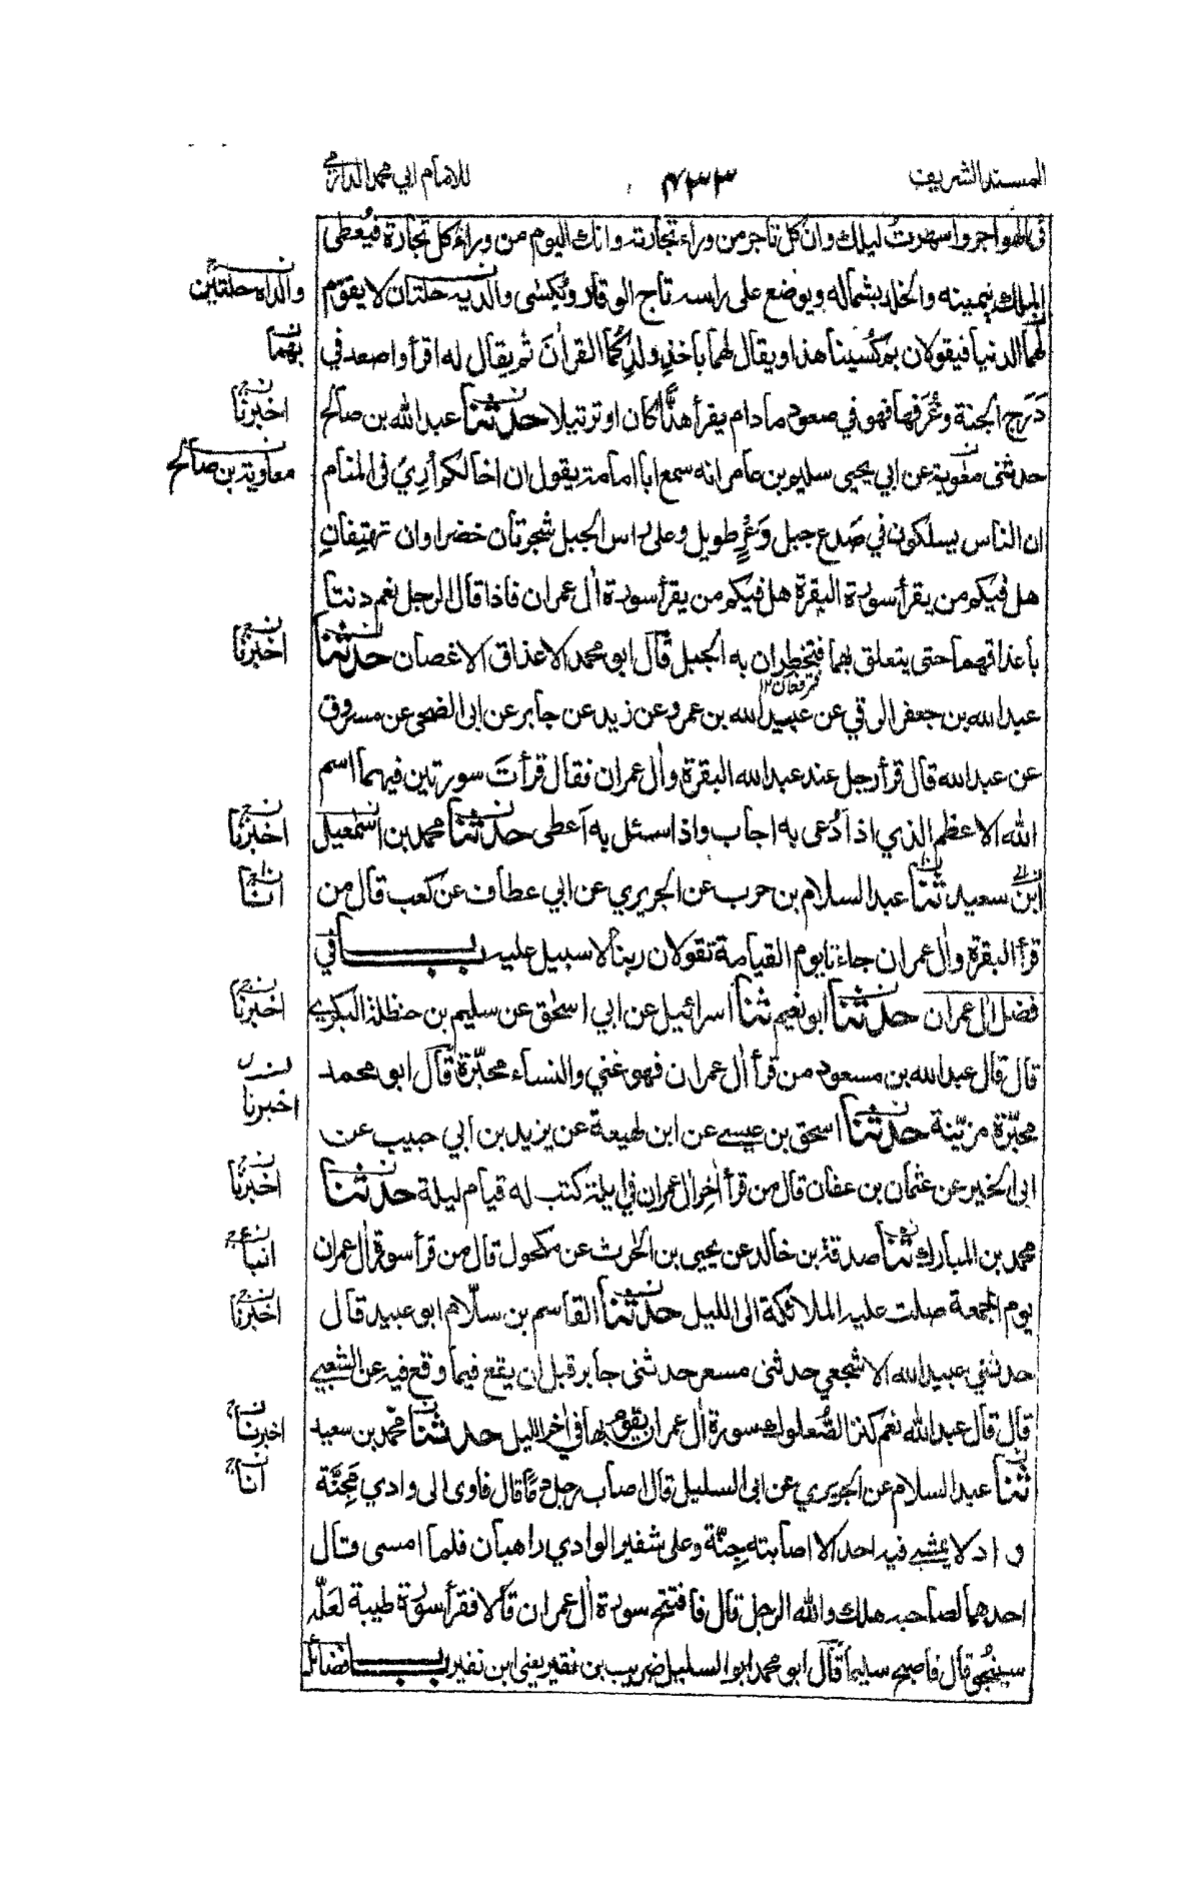 المسند الشريف
٤٣٣
للامام ابي محمد الدارمي
في الهواجر واسهرت ليلك وان كل تاجر من وراء تجارته وانك اليوم من وراء كل تجارة فيعطى
الملك بيمينه والخلد بشماله ويوضع على راسه تاج الوقار ويكسى والديه حلتان لا يقوم
والداه حلقتين
لهما الدنيا فيقولان بم كسينا هذا ويقال لهما باخذ ولدكما القرآن ثم يقال له اقرأ واصعد في
بهما
دَرَج الجنة وغُرَفها فهو في صعود ما دام يقرأ هذًّا كان او ترتيلا حدثنا عبد الله بن صالح
اخبرنا
حدثنى معٰوية عن ابي يحيى سليم بن عامر انه سمع ابا امامة يقول ان اخا لكم أُرِيَ في المنام
معاوية بن صالح
ان الناس يسلكون في صَدع جبل وَعْرٍ طويل وعلى راس الجبل شجرتان خضراوان تهتِفانِ
هل فيكم من يقرأ سورة البقرة هل فيكم من يقرأ سورة اٰل عمران فاذا قال الرجل نعم دنتا
باعذاقهما حتى يتعلق بهما فتخطران به الجبل قال ابو محمد الاعذاق الاغصان حدثنا
اخبرنا
ترفعان ١٢
عبد الله بن جعفر الرقي عن عبيد الله بن عمرو عن زيد عن جابر عن ابى الضحى عن مسروق
عن عبد الله قال قرأ رجل عند عبد الله البقرة واٰل عمران فقال قرأتَ سورتين فيهما اسم
الله الاعظم الذي اذا دُعى به اجاب واذا سئل به اَعطى حدثنا محمد بن اسمٰعيل
اخبرنا
ابن سعيد ثنا عبد السلام بن حرب عن الجريري عن ابي عطاف عن كعب قال من
انا
قرأ البقرة واٰل عمران جاءتا يوم القيامة تقولان ربنا لا سبيل عليه باب في
فضل اٰل عمران حدثنا ابو نعيم ثنا اسرائيل عن ابي اسحٰق عن سليم بن حنظلة البكري
اخبرنا
قال قال عبد الله بن مسعود من قرأ اٰل عمران فهو غني والنساء محبّرة قال ابو محمد
محبّرة مزيّنة حدثنا اسحق بن عيسے عن ابن لهيعة عن يزيد بن ابي حبيب عن
اخبرنا
ابى الخير عن عثمان بن عفان قال من قرأ اٰخر اٰل عمران في ليلة كتب له قيام ليلة حدثنا
اخبرنا
محمد بن المبارك ثنا صدقة بن خالد عن يحيى بن الحٰرث عن مكحول قال من قرأ سورة اٰل عمران
انبا
يوم الجمعة صلت عليه الملائكة الى الليل حدثنا القاسم بن سلّام ابو عبيد قال
اخبرنا
حدثني عبيد الله الاشجعي حدثنى مسعر حدثنى جابر قبل ان يقع فيما وقع فيه عن الشعبي
قال قال عبد الله نعم كنز الصُّعلوك سورة اٰل عمران يقوم بها في اٰخر الليل حدثنا محمد بن سعيد
اخبرنا
ثنا عبد السلام عن الجريري عن ابى السليل قال اصاب رجل دمًا قال فاوى الى وادي مَجِنَّة
انا
واد لا يمشي فيه احد الا اصابته جِنَّة وعلى شفير الوادي راهبان فلما امسى قال
احدهما لصاحبه هلك والله الرجل قال فافتتح سورة اٰل عمران قالا فقرأ سورة طيبة لعلّه
سينجو قال فاصبح سليما قال ابو محمد ابو السليل ضريب بن نقير يعني ابن نفير باب فضائل